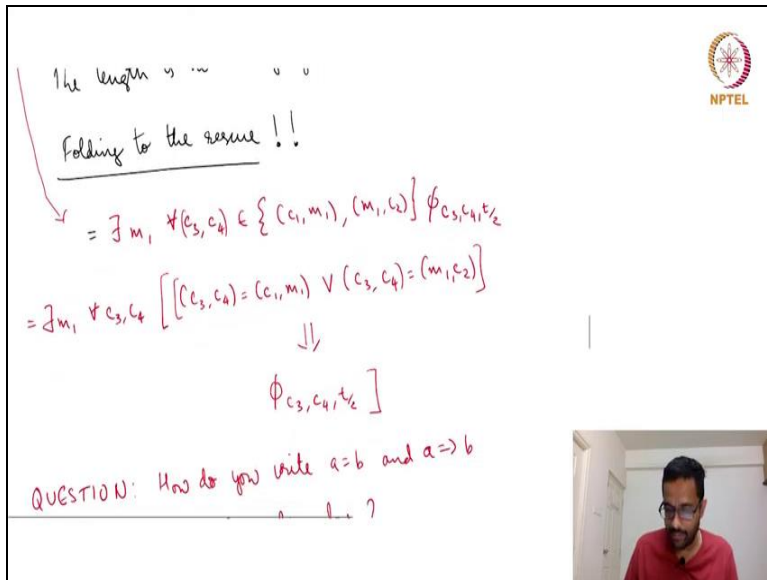 The length is
NPTEL
Folding to the rescue !!
= ∃ m₁ ∀(c₃,c₄) ∈ {(c₁,m₁), (m₁,c₂)} ϕ_{c₃,c₄,t/2}
= ∃m₁ ∀ c₃,c₄ [[(c₃,c₄) = (c₁,m₁) ∨ (c₃,c₄) = (m₁,c₂)]
⇓
ϕ_{c₃,c₄,t/2} ]
QUESTION: How do you write a=b and a=>b
?